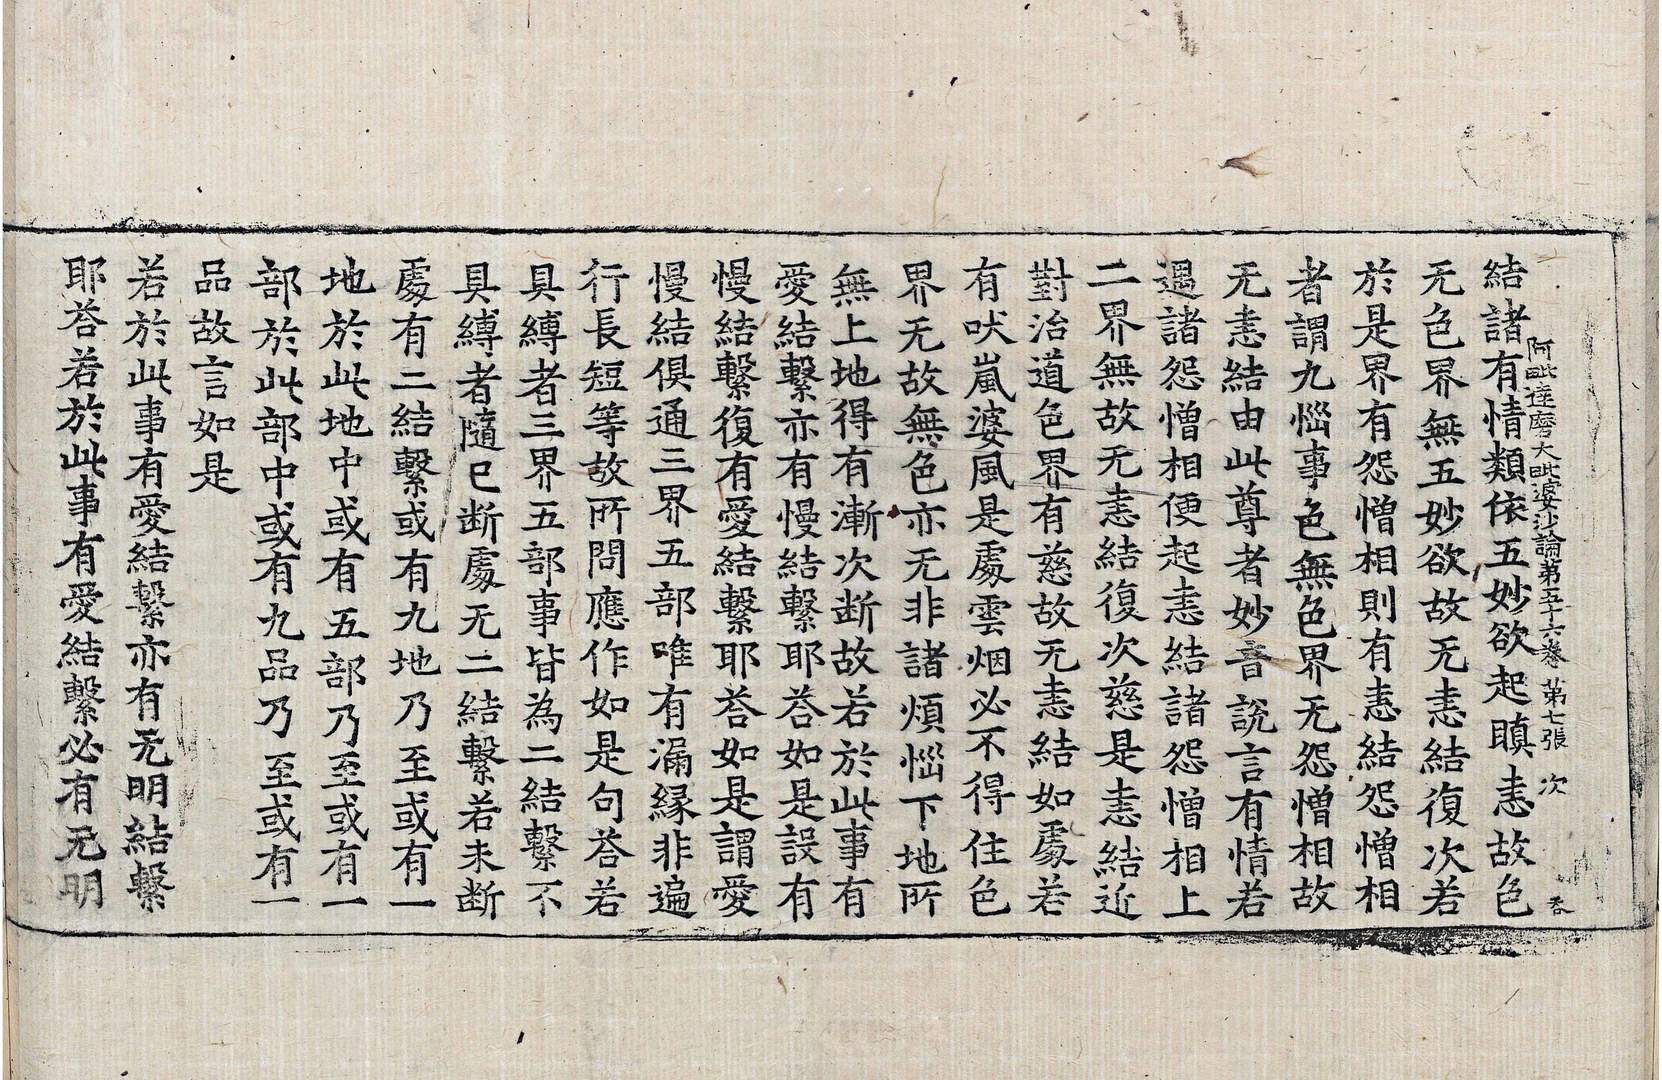 阿毗達磨大毗婆沙論第五十六卷 第七張 次
結諸有情類依五妙欲起瞋恚故色
无色界無五妙欲故无恚結復次若
於是界有怨憎相則有恚結怨憎相
者謂九惱事色無色界无怨憎相故
无恚結由此尊者妙音說言有情若
遇諸怨憎相便起恚結諸怨憎相上
二界無故无恚結復次慈是恚結近
對治道色界有慈故无恚結如處若
有吠嵐婆風是處雲烟必不得住色
界无故無色亦无非諸煩惱下地所
無上地得有漸次断故若於此事有
愛結繫亦有慢結繫耶荅如是設有
慢結繫復有愛結繫耶荅如是謂愛
慢結俱通三界五部唯有漏緣非遍
行長短等故所問應作如是句荅若
具縛者三界五部事皆為二結繫不
具縛者隨已断處无二結繫若未断
處有二結繫或有九地乃至或有一
地於此地中或有五部乃至或有一
部於此部中或有九品乃至或有一
品故言如是
若於此事有愛結繫亦有无明結繫
耶荅若於此事有愛結繫必有无明